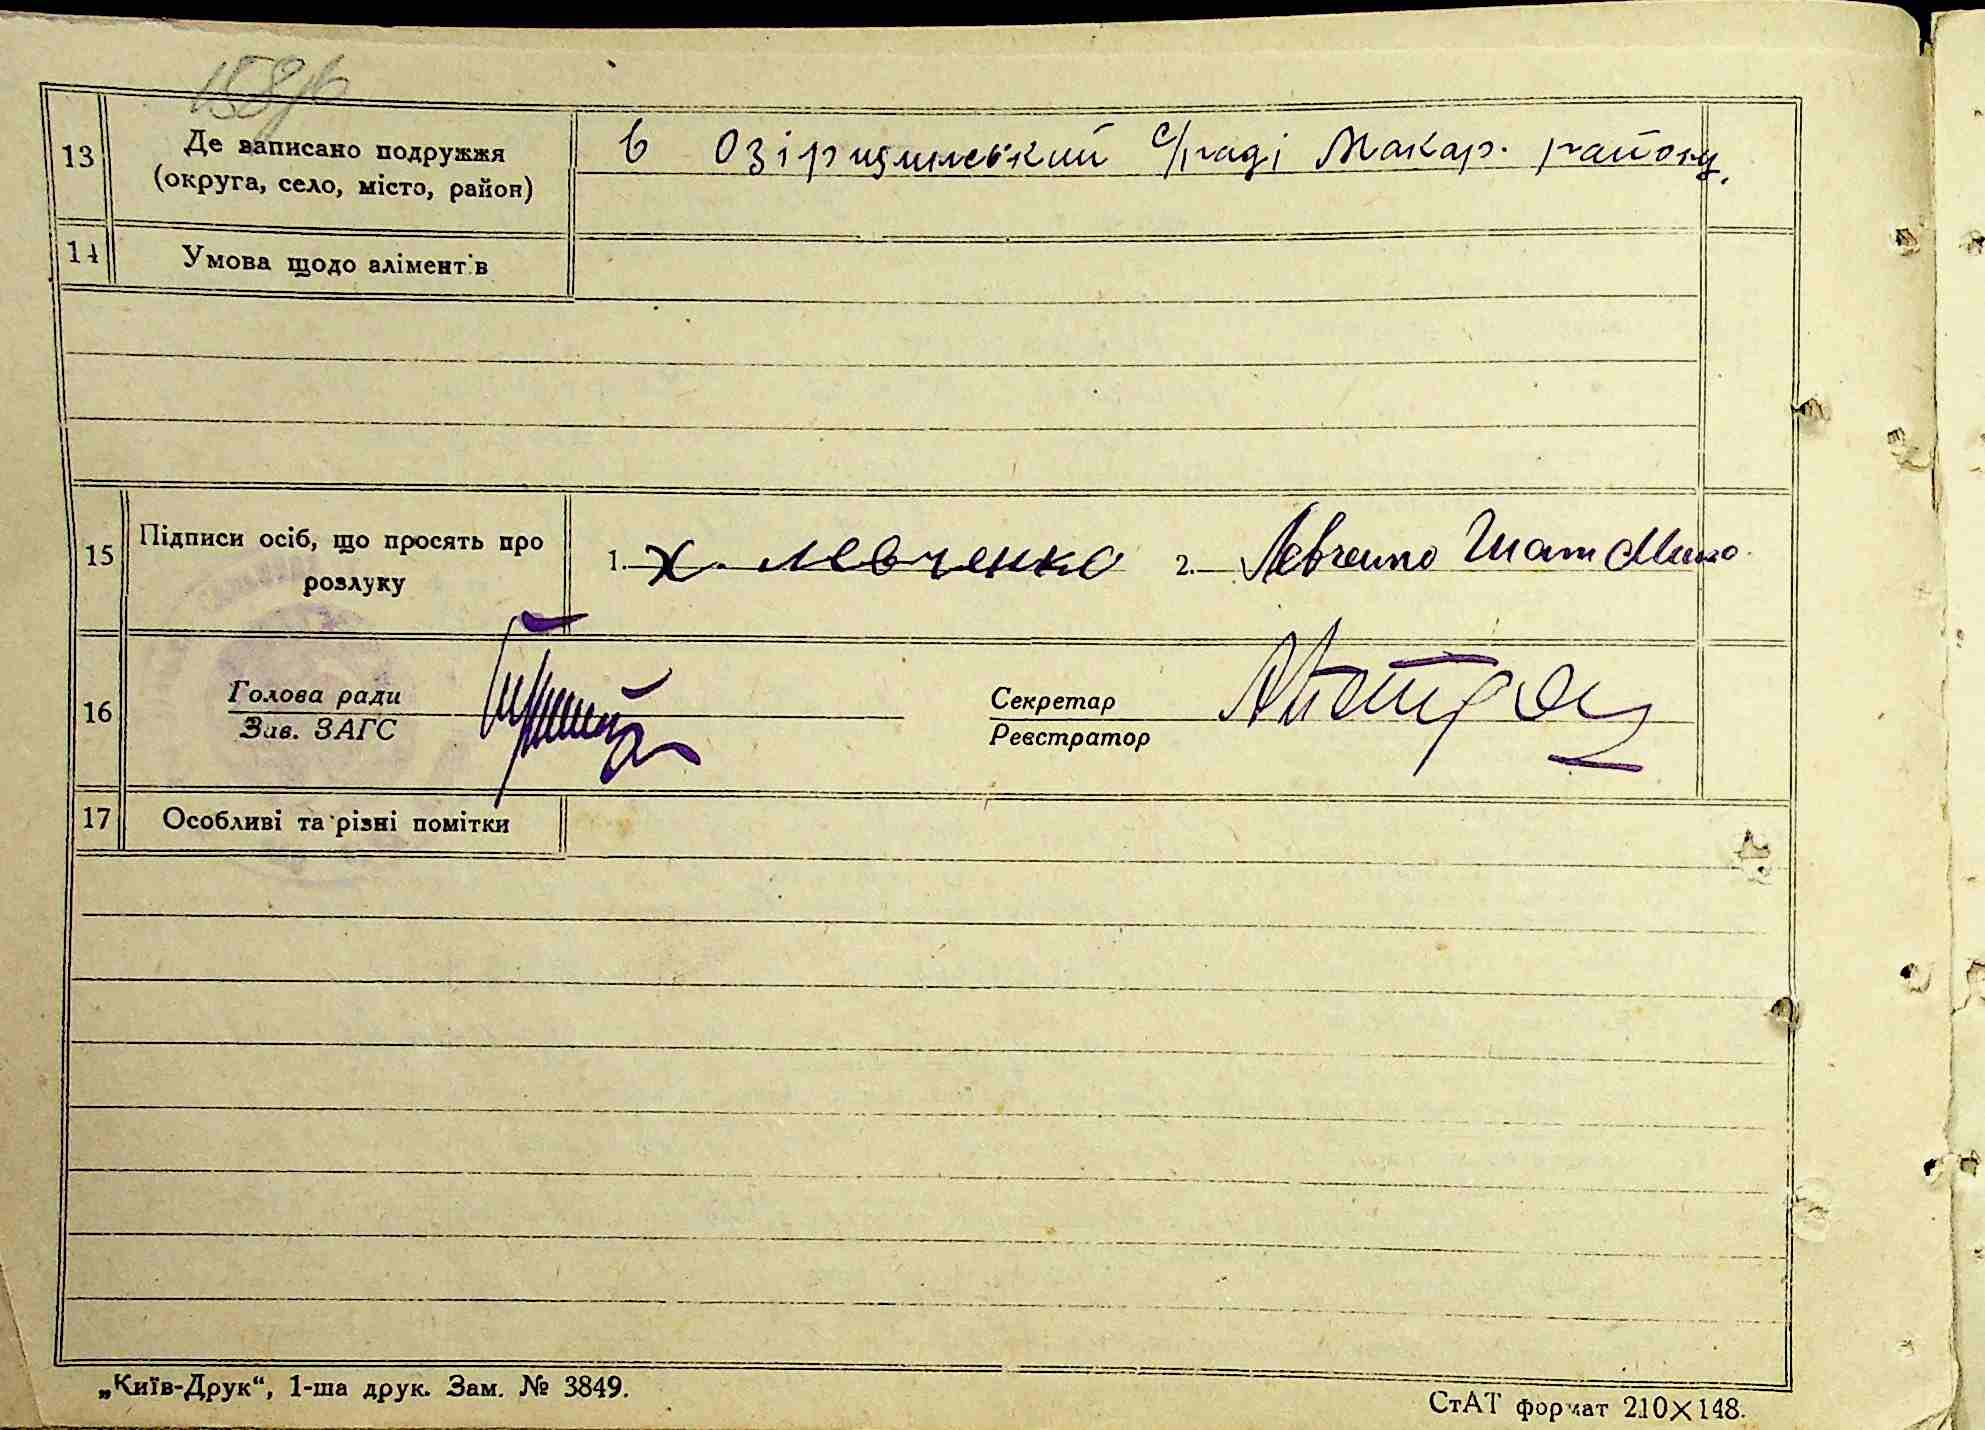 158
13
Де записано подружжя
(округа, село, місто, район)
в Озірщинський с/раді Макар. району.
14
Умова щодо аліментів
15
Підписи осіб, що просять про
розлуку
1. Х. Левченко 2. Левченко
16
Голова ради
Зав. ЗАГС
Секретар
Реєстратор
17
Особливі та різні помітки
„Київ-Друк“, 1-ша друк. Зам. № 3849.
СтАТ формат 210×148.